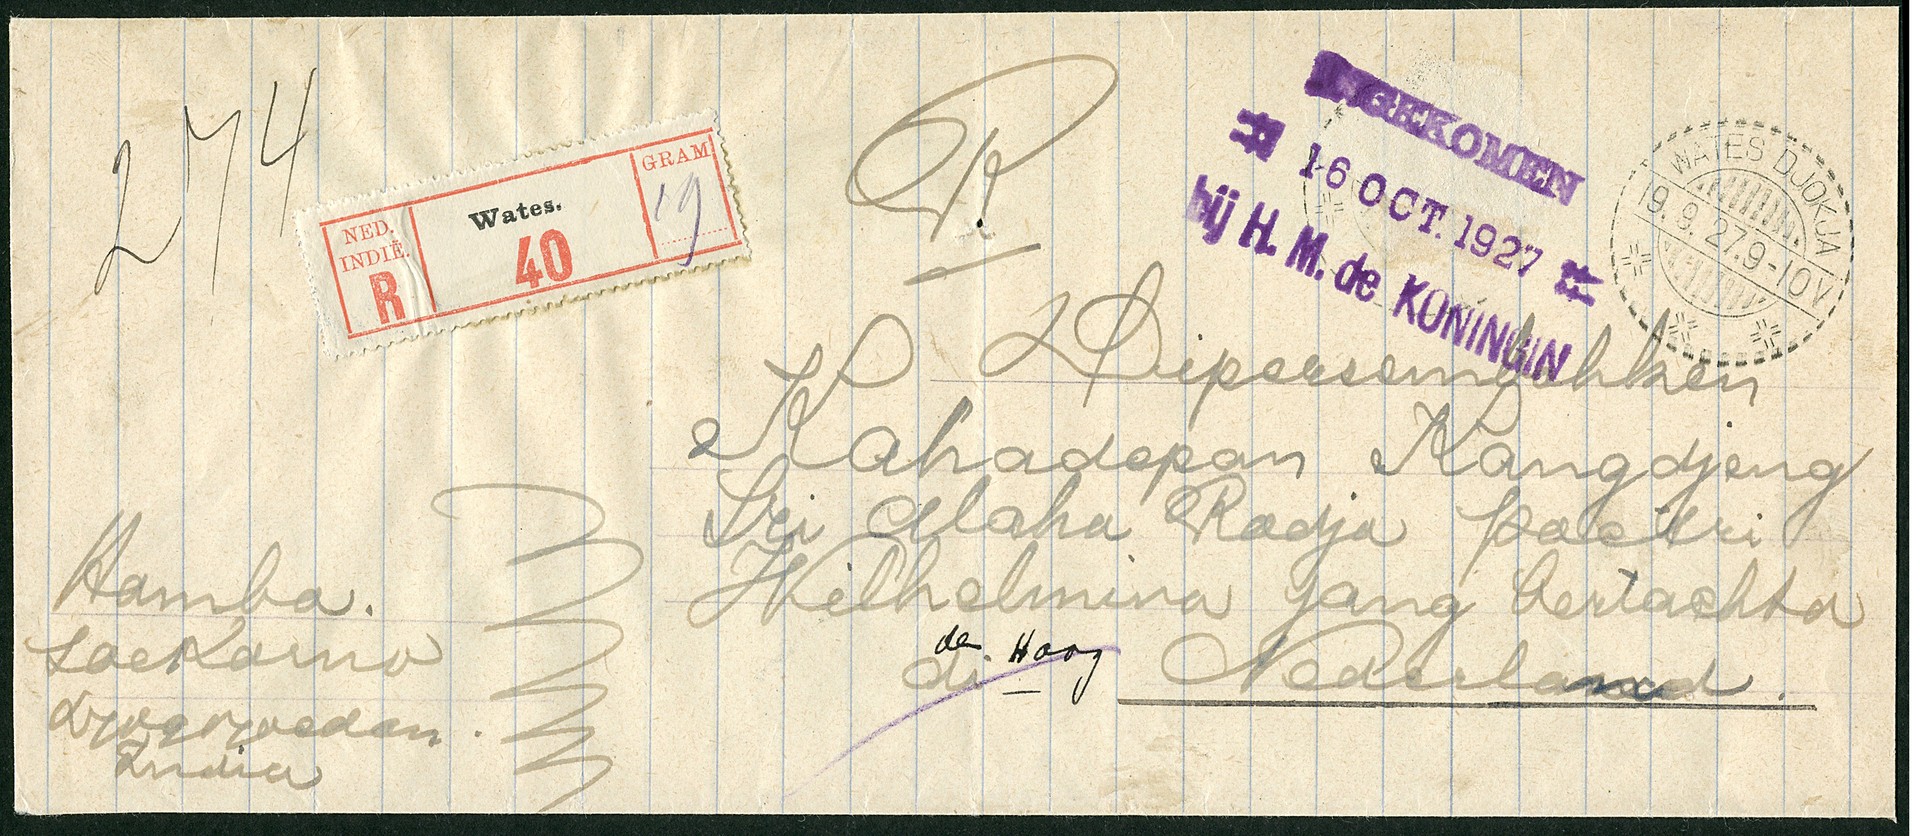 274
NED. INDIË.
R
Wates.
40
GRAM
19
R
INGEKOMEN
16 OCT. 1927
bij H. M. de KONINGIN
WATES DJOKJA
19.9.27.9-10V
Dipersembahken
Kahadepan Kangdjeng
Sri Maha Radja poetri
Wilhelmina jang bertachta
di Nederland.
de Haag
Hamba.
Soekarno
India